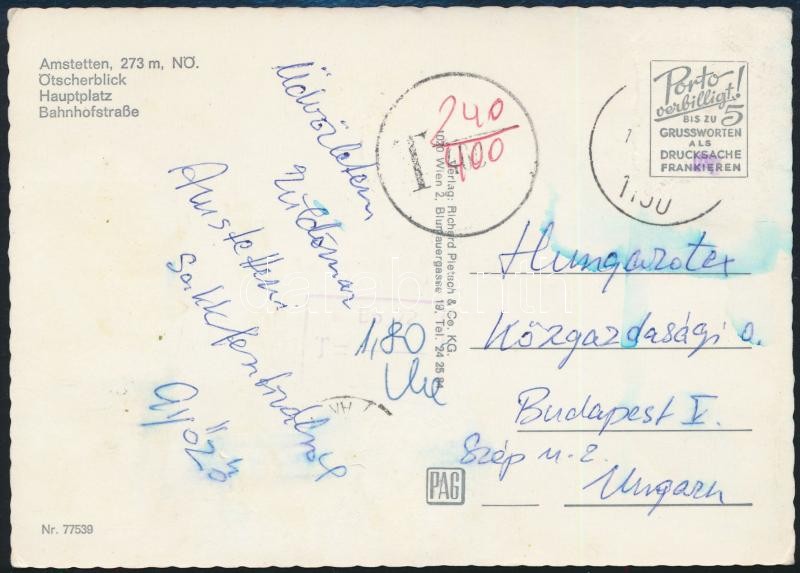 Amstetten, 273 m, NÖ.
Ötscherblick
Hauptplatz
Bahnhofstraße
Üdvözletem
küldöm az
Amstetteni
Győző
240
400
T
Verlag: Richard Pietsch & Co. KG.
1020 Wien 2, Blumauergasse 19, Tel. 24 25 84
1,80
Porto
verbilligt!
BIS ZU 5
GRUSSWORTEN
ALS
DRUCKSACHE
FRANKIEREN
1150
Hungarotex
Közgazdasági o.
Budapest V.
Szép u. 2.
Ungarn
PAG
Nr. 77539
darabanth